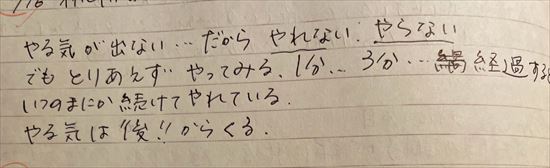 やる気が出ない…だからやれない.やらない
でもとりあえずやってみる.1分… 3分… 経過する
いつのまにか続けてやれている.
やる気は“後!!からくる.